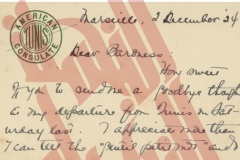 AMERICAN
TUNIS
CONSULATE
Marseille, 2 December '24
Dear Baroness:
How sweet
of you to send me a goodbye though
to my departure from Tunis on Sat-
urday last. I appreciate more than
I can tell the "petit mot" and